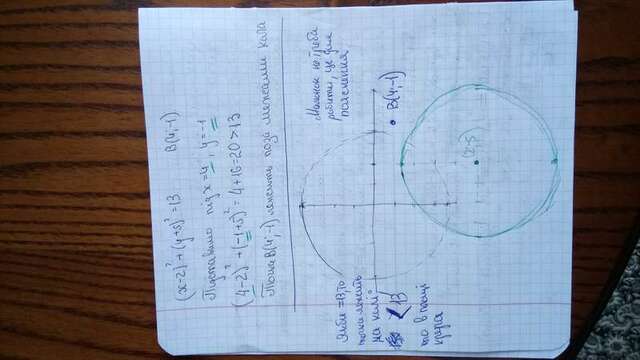 (x-2)² + (y+5)² = 13     B(4;-1)
Підставимо під x=4, y=-1
(4-2)² + (-1+5)² = 4+16=20>13
Точка B(4;-1) лежить поза межами кола
Малюнок не треба
робити, це для
пояснення
B(4;-1)
Якби =13, то
точка лежить
на колі
<13
то в
круга